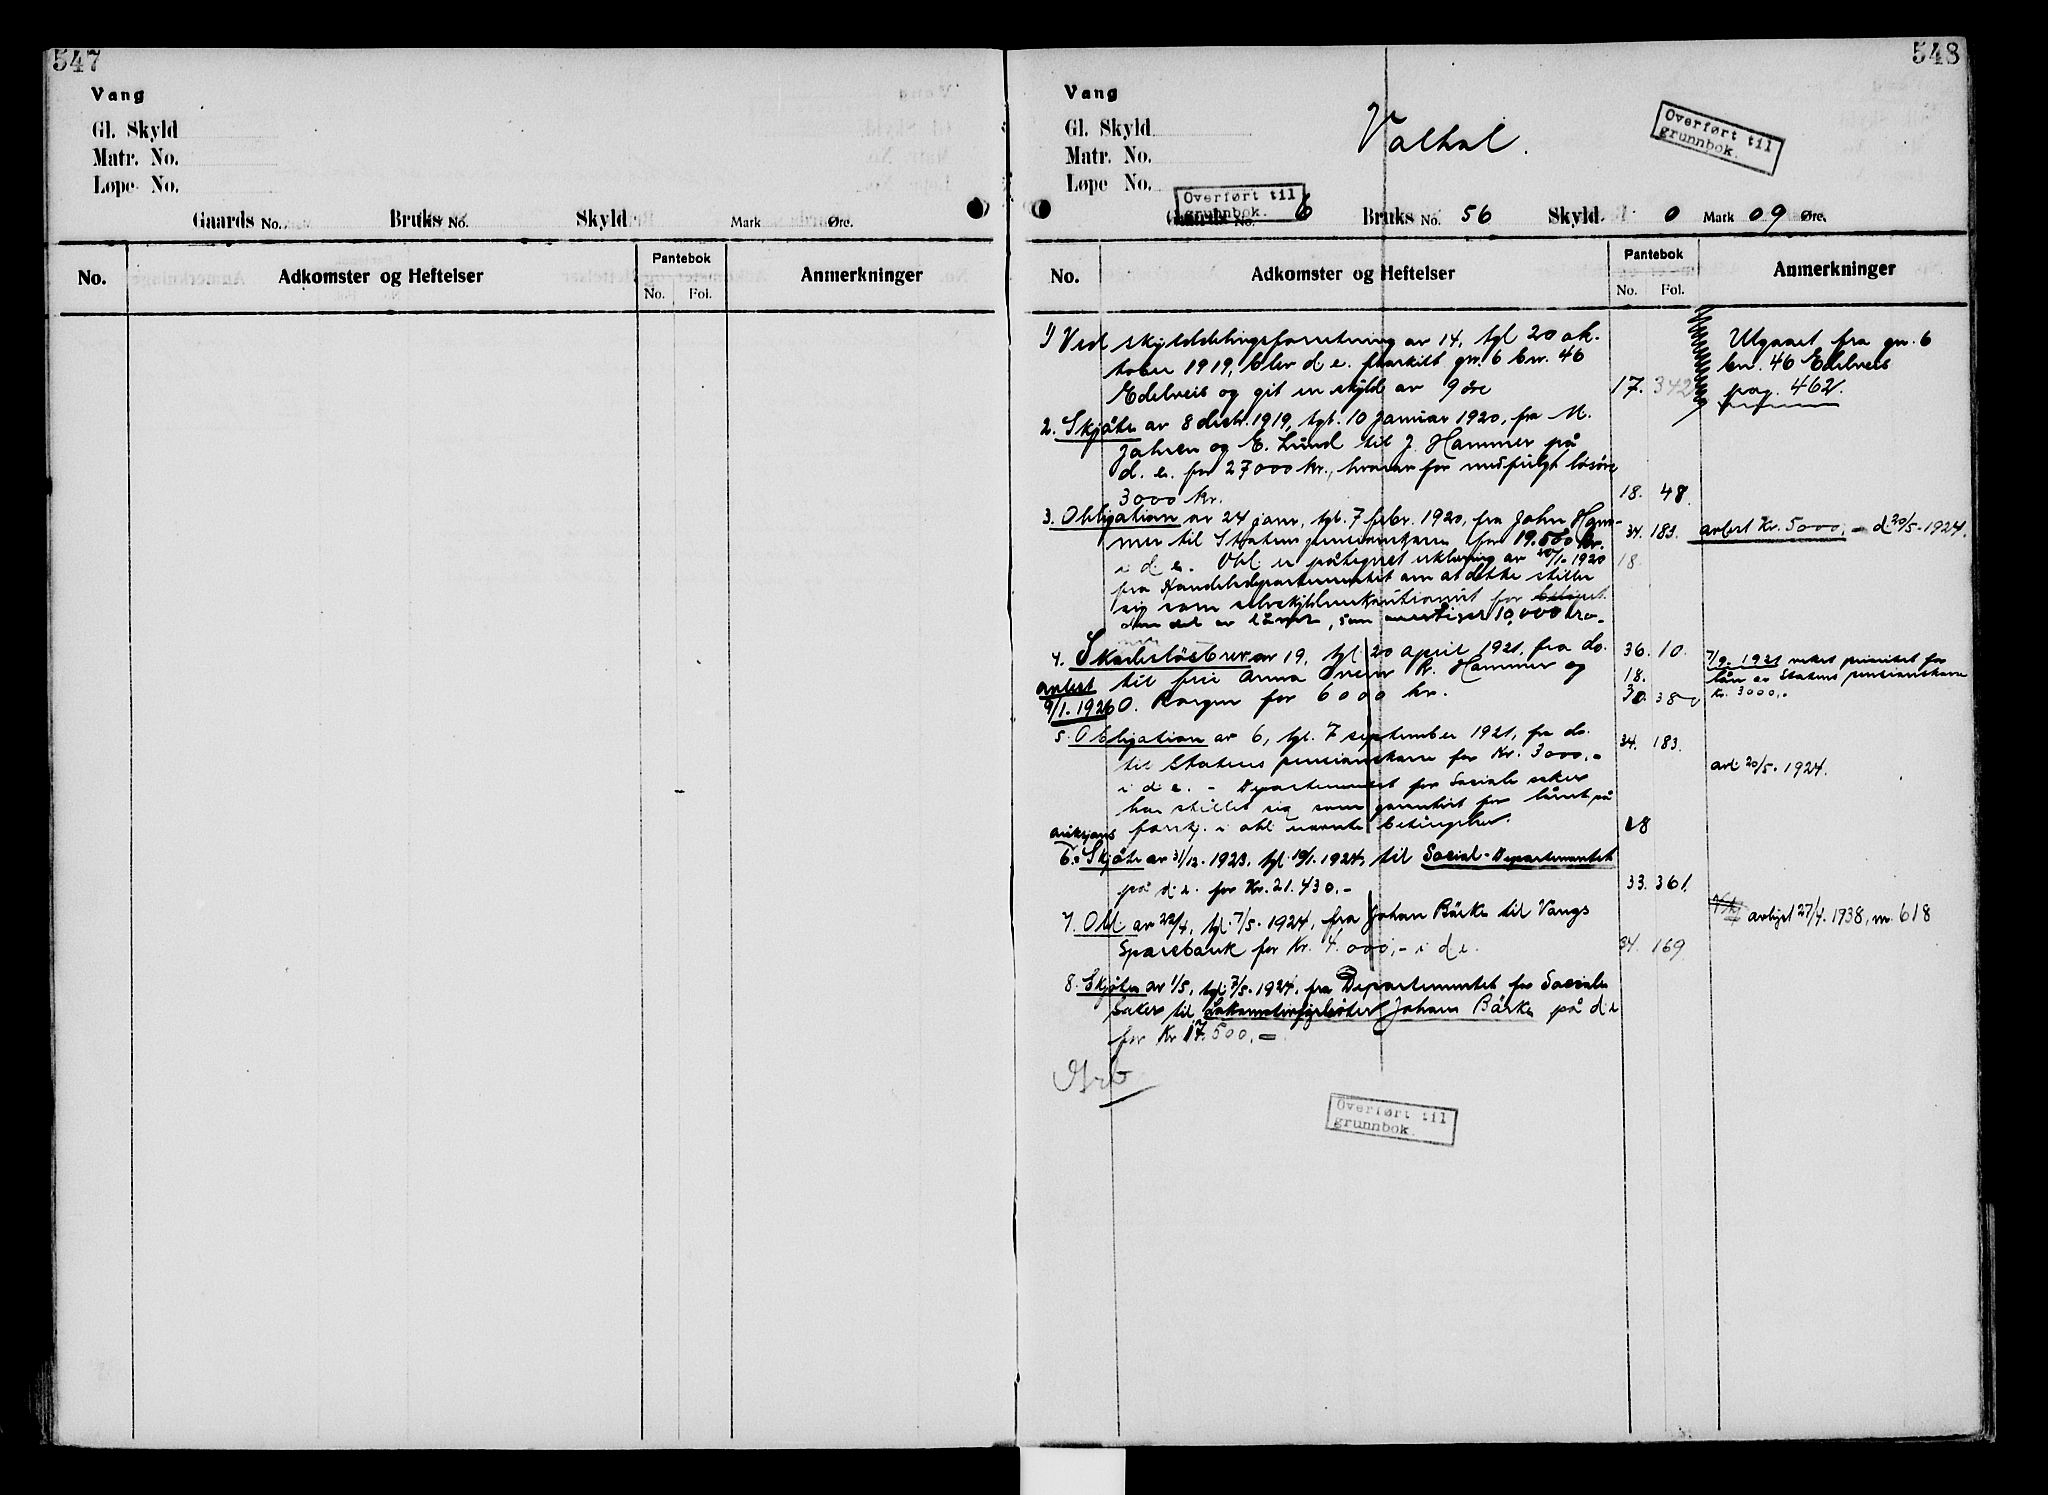 547
Vang
Gl. Skyld
Matr. No.
Løpe No.
Gaards No. Bruks No. Skyld Mark Øre.
No. Adkomster og Heftelser Pantebok Anmerkninger
No. Fol.
548
Vang
Gl. Skyld
Matr. No.
Løpe No.
Valhal.
Overført til
grunnbok.
Overført til
grunnbok.
Gaards No. 6 Bruks No. 56 Skyld 0 Mark 09 Øre.
No. Adkomster og Heftelser Pantebok Anmerkninger
No. Fol.
1) Ved skylddelingsforretning av 14, tgl 20 ok-
tober 1919, blev d. e. fraskilt gn. 6 bn. 46
Edelveis og git en skyld av 9 øre 17. 342
Utgaaet fra gn. 6
bn. 46 Edelveis
pag. 462.
2. Skjøte av 8 decbr. 1919, tgl. 10 januar 1920, fra M.
Jahren og E. Lund til J. Hammer på
d. e. for 27000 kr., hvorav for medfulgt løsøre
3000 kr. 18. 48.
3. Obligation av 24 janr, tgl. 7 febr. 1920, fra John Ham-
mer til Statens pensionskasse for 19.500 kr. 34. 183. avlest Kr. 5000.- d 20/5-1924.
i d. e. Obl. er påtegnet erklæring av 20/1-1920 18.
fra Handelsdepartementet om at dette stiller
sig som selvskyldnerkautionist for beløpet
den del av lånet, som overstiger 10,000 kro-
4. Skadesløsbrev av 19, tgl 20 april 1921, fra do. 36. 10.
til frue Anna K. Hammer og 18.
O. for 6000 kr. 30. 380
avlest
9/1. 1926
7/9. 1921 veket prioritet for
lån av Statens pensionskasse
kr. 3000.-
5. Obligation av 6, tgl. 7 september 1921, fra do. 34. 183.
til Statens pensionskasse for Kr. 3000.-
i d. e. - Departementet for Sociale saker
har stillet sig som garantist for lånet på
forskj. i obl. nevnte betingelser. 18
avl. 20/5-1924.
auksjons
6. Skjøte av 31/12-1923, tgl 19/1-1924, til Social-Departementet
på d. e. for Kr. 21.430.- 33. 361.
7. Obl. av 22/4, tgl. 7/5-1924, fra Johan Bårke til Vangs
Sparebank for Kr. 4.000,- i d e. 34. 169.
avlyst 27/4. 1938, nr. 618
8. Skjøte av 1/5, tgl. 7/5-1924, fra Departementet for Sociale
Saker til Lokomotivfyrbøter Johan Bårke på d. e
for Kr 17.500.-
Overført til
grunnbok.